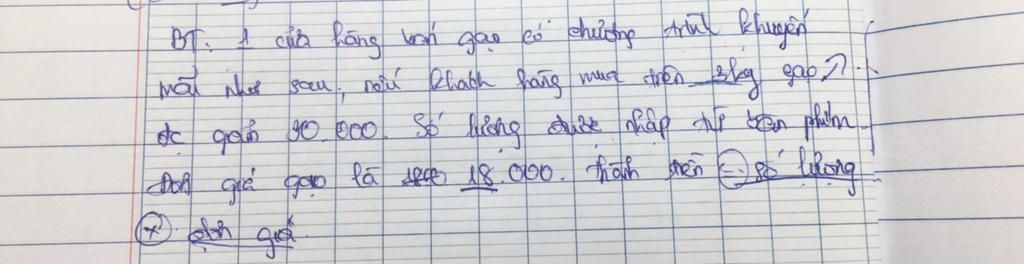 BT: 1 cửa hàng bán gạo có chương trình khuyến
mãi như sau, nếu khách hàng mua trên 3kg gạo →
đc giảm 90.000. Số lượng được nhập từ bàn phím
Đơn giá gạo là 18.000. thành tiền = số lượng
x đơn giá